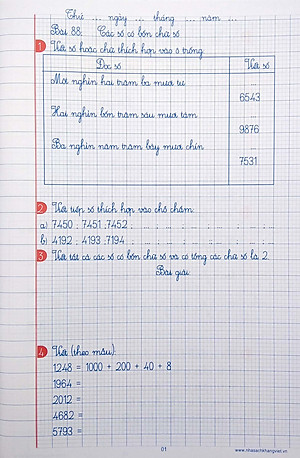 Thứ ... ngày ... tháng ... năm ...
Bài 88: Các số có bốn chữ số
1 Viết số hoặc chữ thích hợp vào ô trống.
Đọc số Viết số
Một nghìn hai trăm ba mươi tư
6543
Hai nghìn bốn trăm sáu mươi tám
9876
Ba nghìn năm trăm bảy mươi chín ...
7531
2 Viết tiếp số thích hợp vào chỗ chấm:
a) 7450 ; 7451 ; 7452 ; ... ; ... ; ... ; ...
b) 4192 ; 4193 ; 7194 ; ... ; ... ; ... ; ...
3 Viết tất cả các số có bốn chữ số và có tổng các chữ số là 2.
Bài giải
4 Viết (theo mẫu):
1248 = 1000 + 200 + 40 + 8
1964 =
2012 =
4682 =
5793 =
01 www.nhasachkhangviet.vn